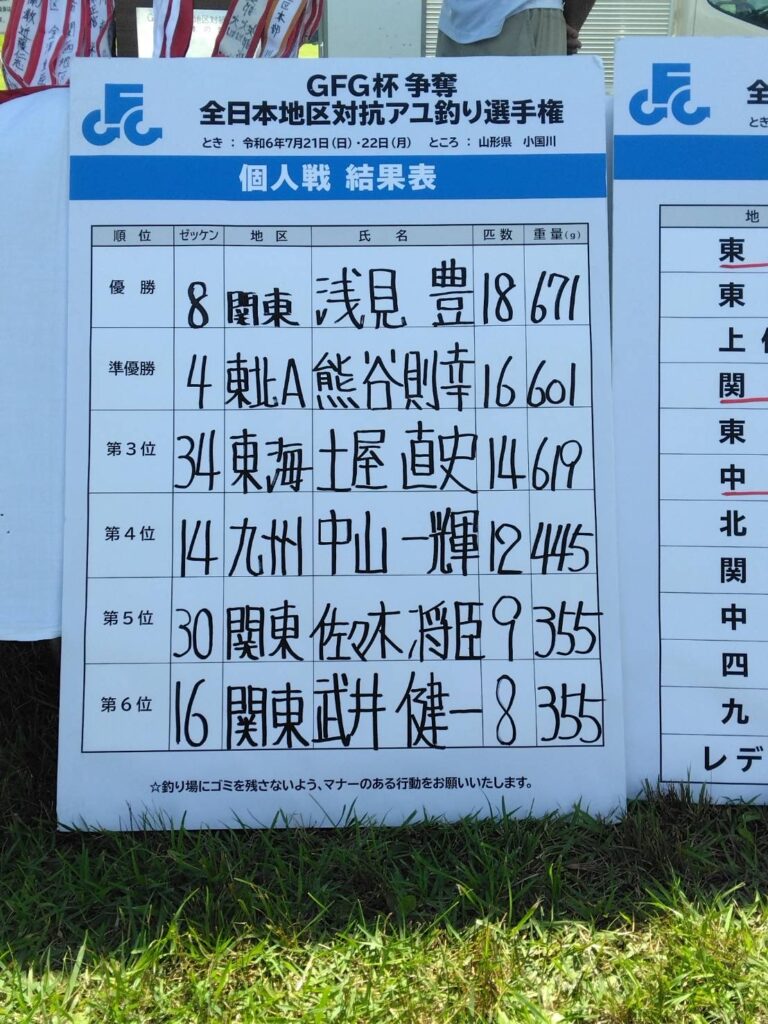 GFG杯 争奪
全日本地区対抗アユ釣り選手権
とき : 令和6年7月21日(日)・22日(月) ところ : 山形県 小国川
個人戦 結果表
順位 ゼッケン 地区 氏名 匹数 重量(g)
優勝 8 関東 浅見 豊 18 671
準優勝 4 東北A 熊谷則幸 16 601
第3位 34 東海 土屋 直史 14 619
第4位 14 九州 中山 一輝 12 445
第5位 30 関東 佐々木 将臣 9 355
第6位 16 関東 武井 健一 8 355
☆釣り場にゴミを残さないよう、マナーのある行動をお願いいたします。
全
とき
地
東
東
上
関
東
中
北
関
中
四
九
レデ